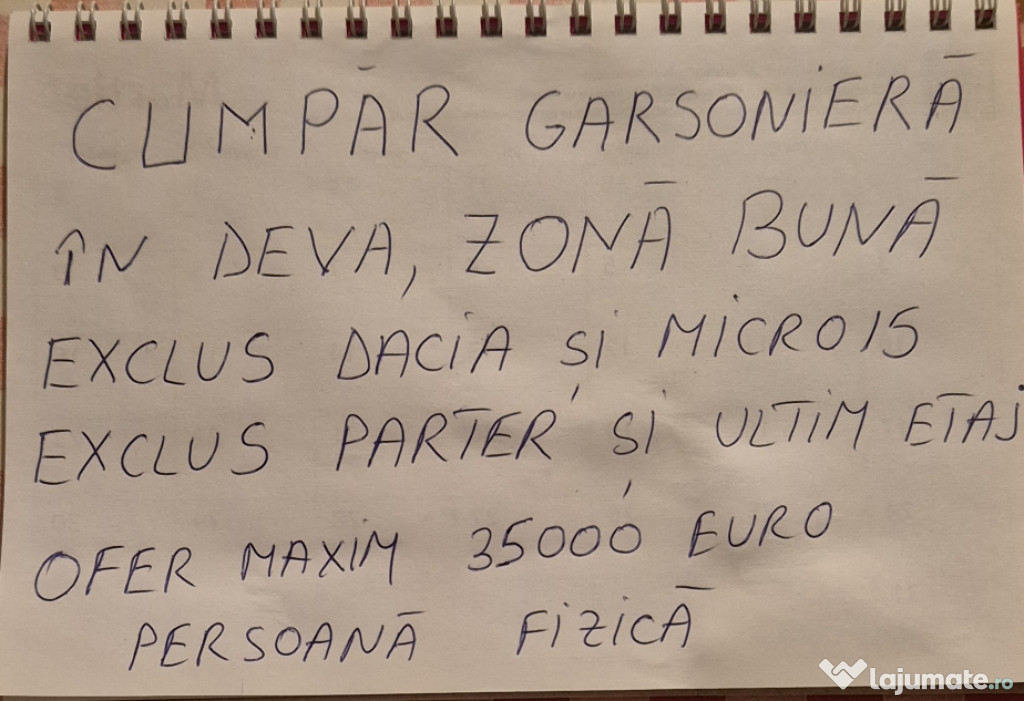 CUMPĂR GARSONIERĂ
ÎN DEVA, ZONĂ BUNĂ
EXCLUS DACIA ȘI MICRO 15
EXCLUS PARTER ȘI ULTIM ETAJ
OFER MAXIM 35000 EURO
PERSOANĂ FIZICĂ
lajumate.ro